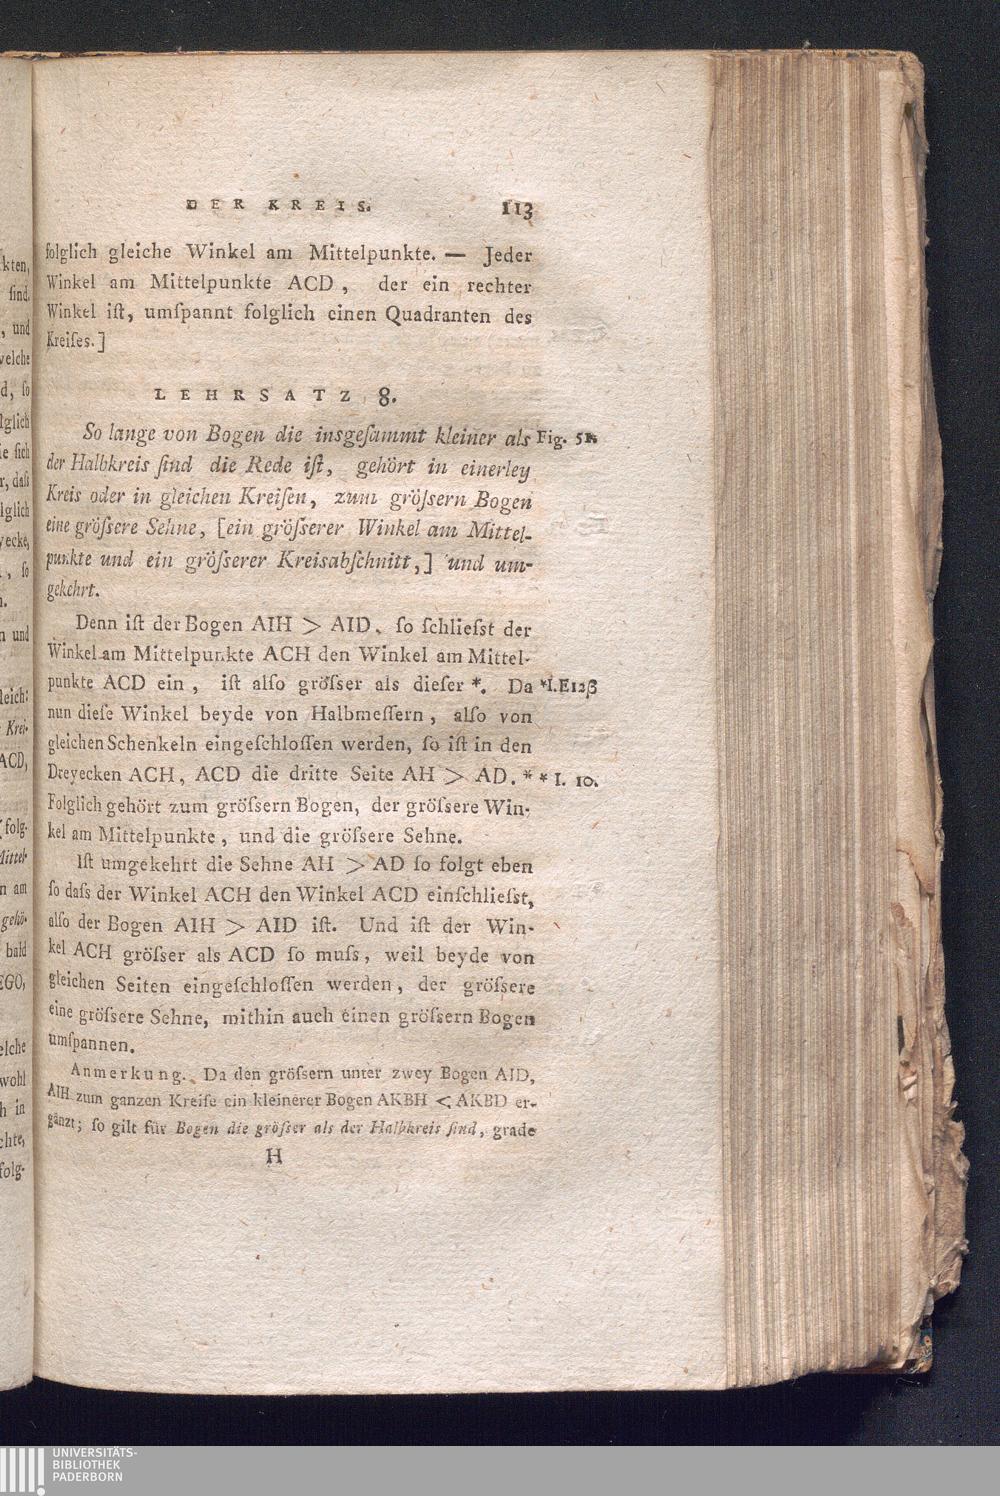 DER KREIS. 113
folglich gleiche Winkel am Mittelpunkte. — Jeder
Winkel am Mittelpunkte ACD, der ein rechter
Winkel iſt, umſpannt folglich einen Quadranten des
Kreiſes.]
LEHRSATZ 8.
So lange von Bogen die insgeſammt kleiner als Fig. 51.
der Halbkreis ſind die Rede iſt, gehört in einerley
Kreis oder in gleichen Kreiſen, zum gröſsern Bogen
eine gröſsere Sehne, [ein gröſserer Winkel am Mittel-
punkte und ein gröſserer Kreisabſchnitt,] und um-
gekehrt.
Denn iſt der Bogen AIH > AID, ſo ſchlieſst der
Winkel am Mittelpunkte ACH den Winkel am Mittel-
punkte ACD ein, iſt alſo gröſser als dieſer *. Da *I.E12β
nun dieſe Winkel beyde von Halbmeſſern, alſo von
gleichen Schenkeln eingeſchloſſen werden, ſo iſt in den
Dreyecken ACH, ACD die dritte Seite AH > AD. * * I. 10.
Folglich gehört zum gröſsern Bogen, der gröſsere Win-
kel am Mittelpunkte, und die gröſsere Sehne.
Iſt umgekehrt die Sehne AH > AD ſo folgt eben
ſo daſs der Winkel ACH den Winkel ACD einſchlieſst,
alſo der Bogen AIH > AID iſt. Und iſt der Win-
kel ACH gröſser als ACD ſo muſs, weil beyde von
gleichen Seiten eingeſchloſſen werden, der gröſsere
eine gröſsere Sehne, mithin auch einen gröſsern Bogen
umſpannen.
Anmerkung. Da den gröſsern unter zwey Bogen AID,
AIH zum ganzen Kreiſe ein kleinerer Bogen AKBH < AKBD er-
gänzt; ſo gilt für Bogen die gröſser als der Halbkreis ſind, grade
H
kten,
ſind.
, und
welche
d, ſo
lglich
ie ſich
r, daſs
lglich
yecke,
, ſo
n und
leich:
Krei-
ACD,
folg-
Mittel-
n am
gehö-
bald
EGO,
elche
wohl
h in
chte,
folg-
UNIVERSITÄTS-
BIBLIOTHEK
PADERBORN